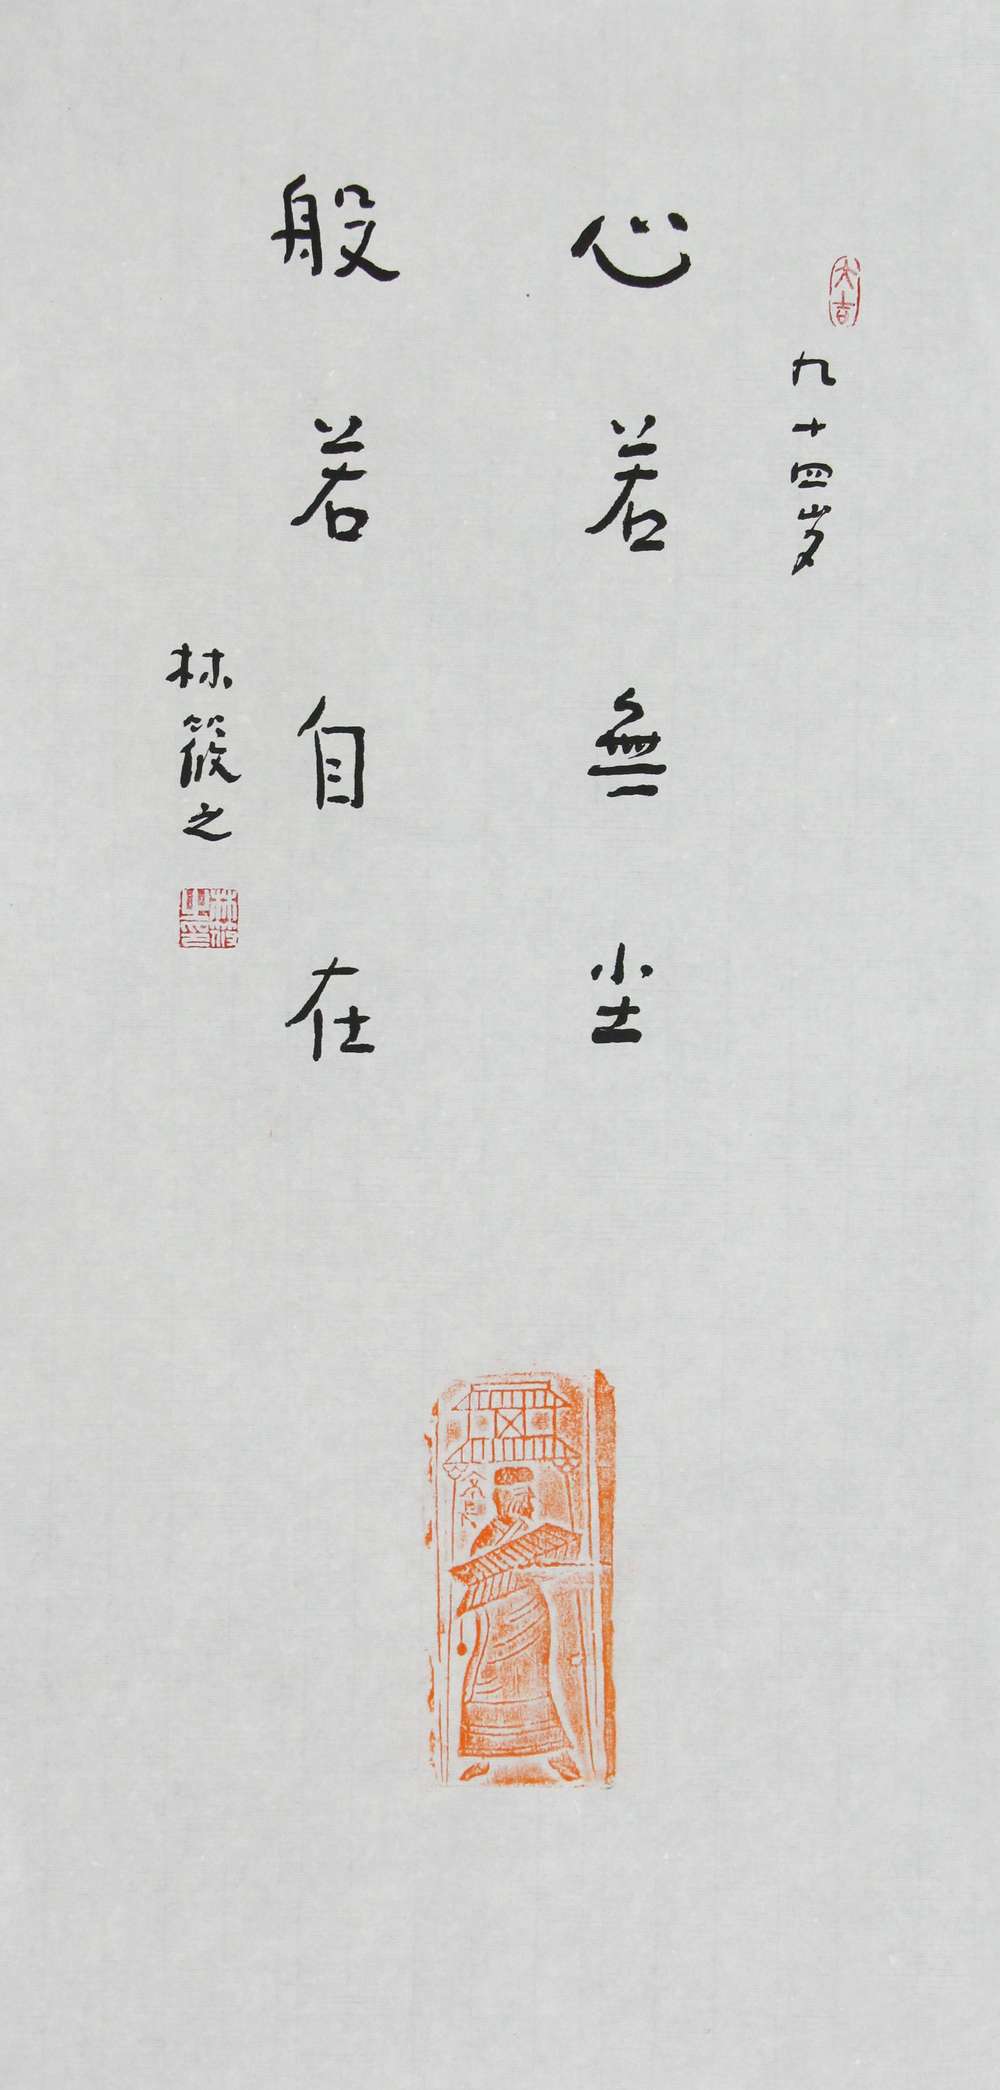 大吉
九十四岁
心若無尘
般若自在
林筱之
林筱之印